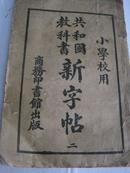 小學校用
共和國
教科書
新字帖
二
商務印書館出版